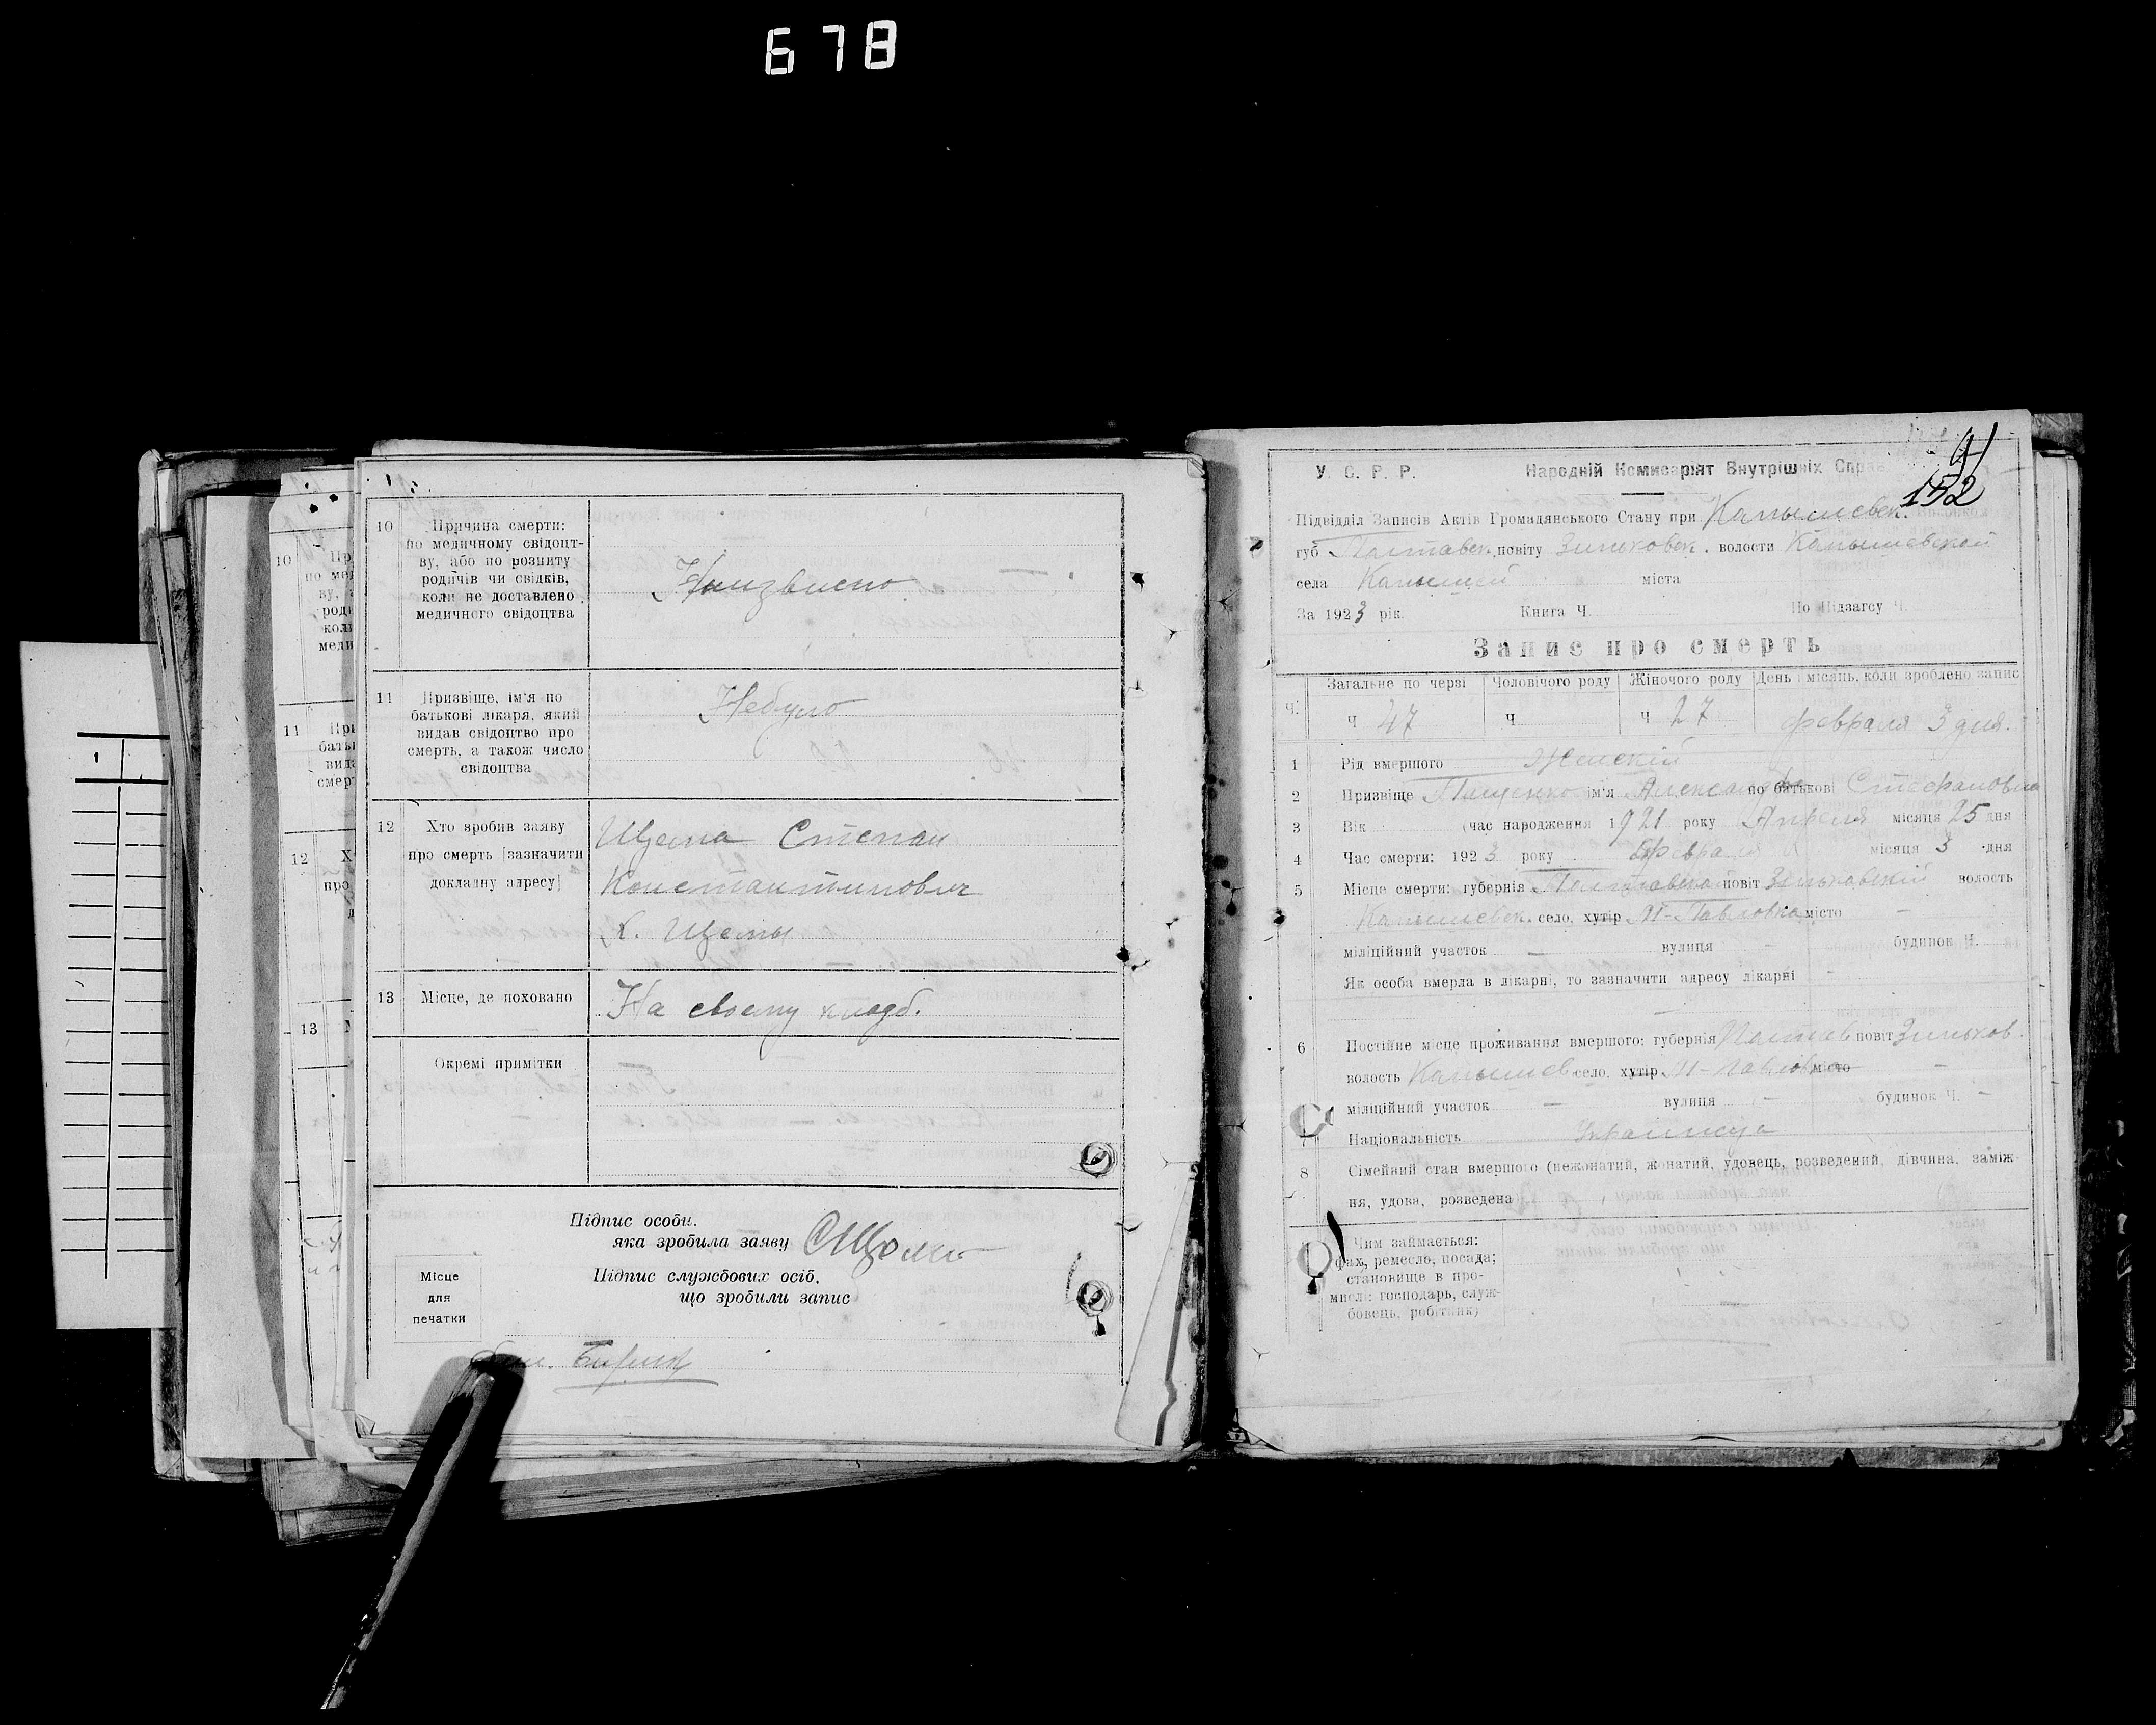 678
10 Причина смерти:
по медичному свідоцт-
ву, або по розпиту
родичів чи свідків,
коли не доставлено
медичного свідоцтва
11 Призвіще, ім'я по
батькові лікаря, який
видав свідоцтво про
смерть, а також число
свідоцтва
Небуло
12 Хто зробив заяву
про смерть [зазначити
докладну адресу]
Щема Степан
Константинович
х. Щемы
13 Місце, де поховано
На своему кладб.
Окремі примітки
Підпис особи,
яка зробила заяву
Підпис службових осіб,
що зробили запис
Місце
для
печатки
10
11
12
13
1
91
152
У. С. Р. Р. Народній Комисаріят Внутрішніх Справ
Підвідділ Записів Актів Громадянського Стану при Капышевск.
губ Полтавск, повіту Зиньковск. волости Капышевской
села міста
За 1923 рік. Книга Ч. По Підзагсу Ч.
Запис про смерть
Ч. Загальне по черзі Чоловічого роду Жіночого роду День і місяць, коли зроблено запис
Ч 47 Ч Ч 27 февраля 3 дня.
1 Рід вмершого Женский
2 Призвіще Пащенко ім'я по батькові Стефановна
3 Вік (час народження 1921 року Апреля місяця 25 дня
4 Час смерти: 1923 року Февраля місяця 3 дня
5 Місце смерти: губернія Полтавска повіт Зиньковский волость
Капышевск. село, хутір Н-Павловка місто —
міліційний участок — вулиця — будинок Н.
Як особа вмерла в лікарні, то зазначити адресу лікарні —
6 Постійне місце проживання вмершого: губернія Полтав повіт Зиньков.
волость Капышев село, хутір Н-Павловка місто —
міліційний участок — вулиця — будинок Ч. —
7 Національність
8 Сімейний стан вмершого (нежонатий, жонатий, удовець, розведений, дівчина, заміж-
ня, удова, розведена
Чим займається:
фах, ремесло, посада;
становище в про-
мислі: господарь, служ-
бовець, робітник)